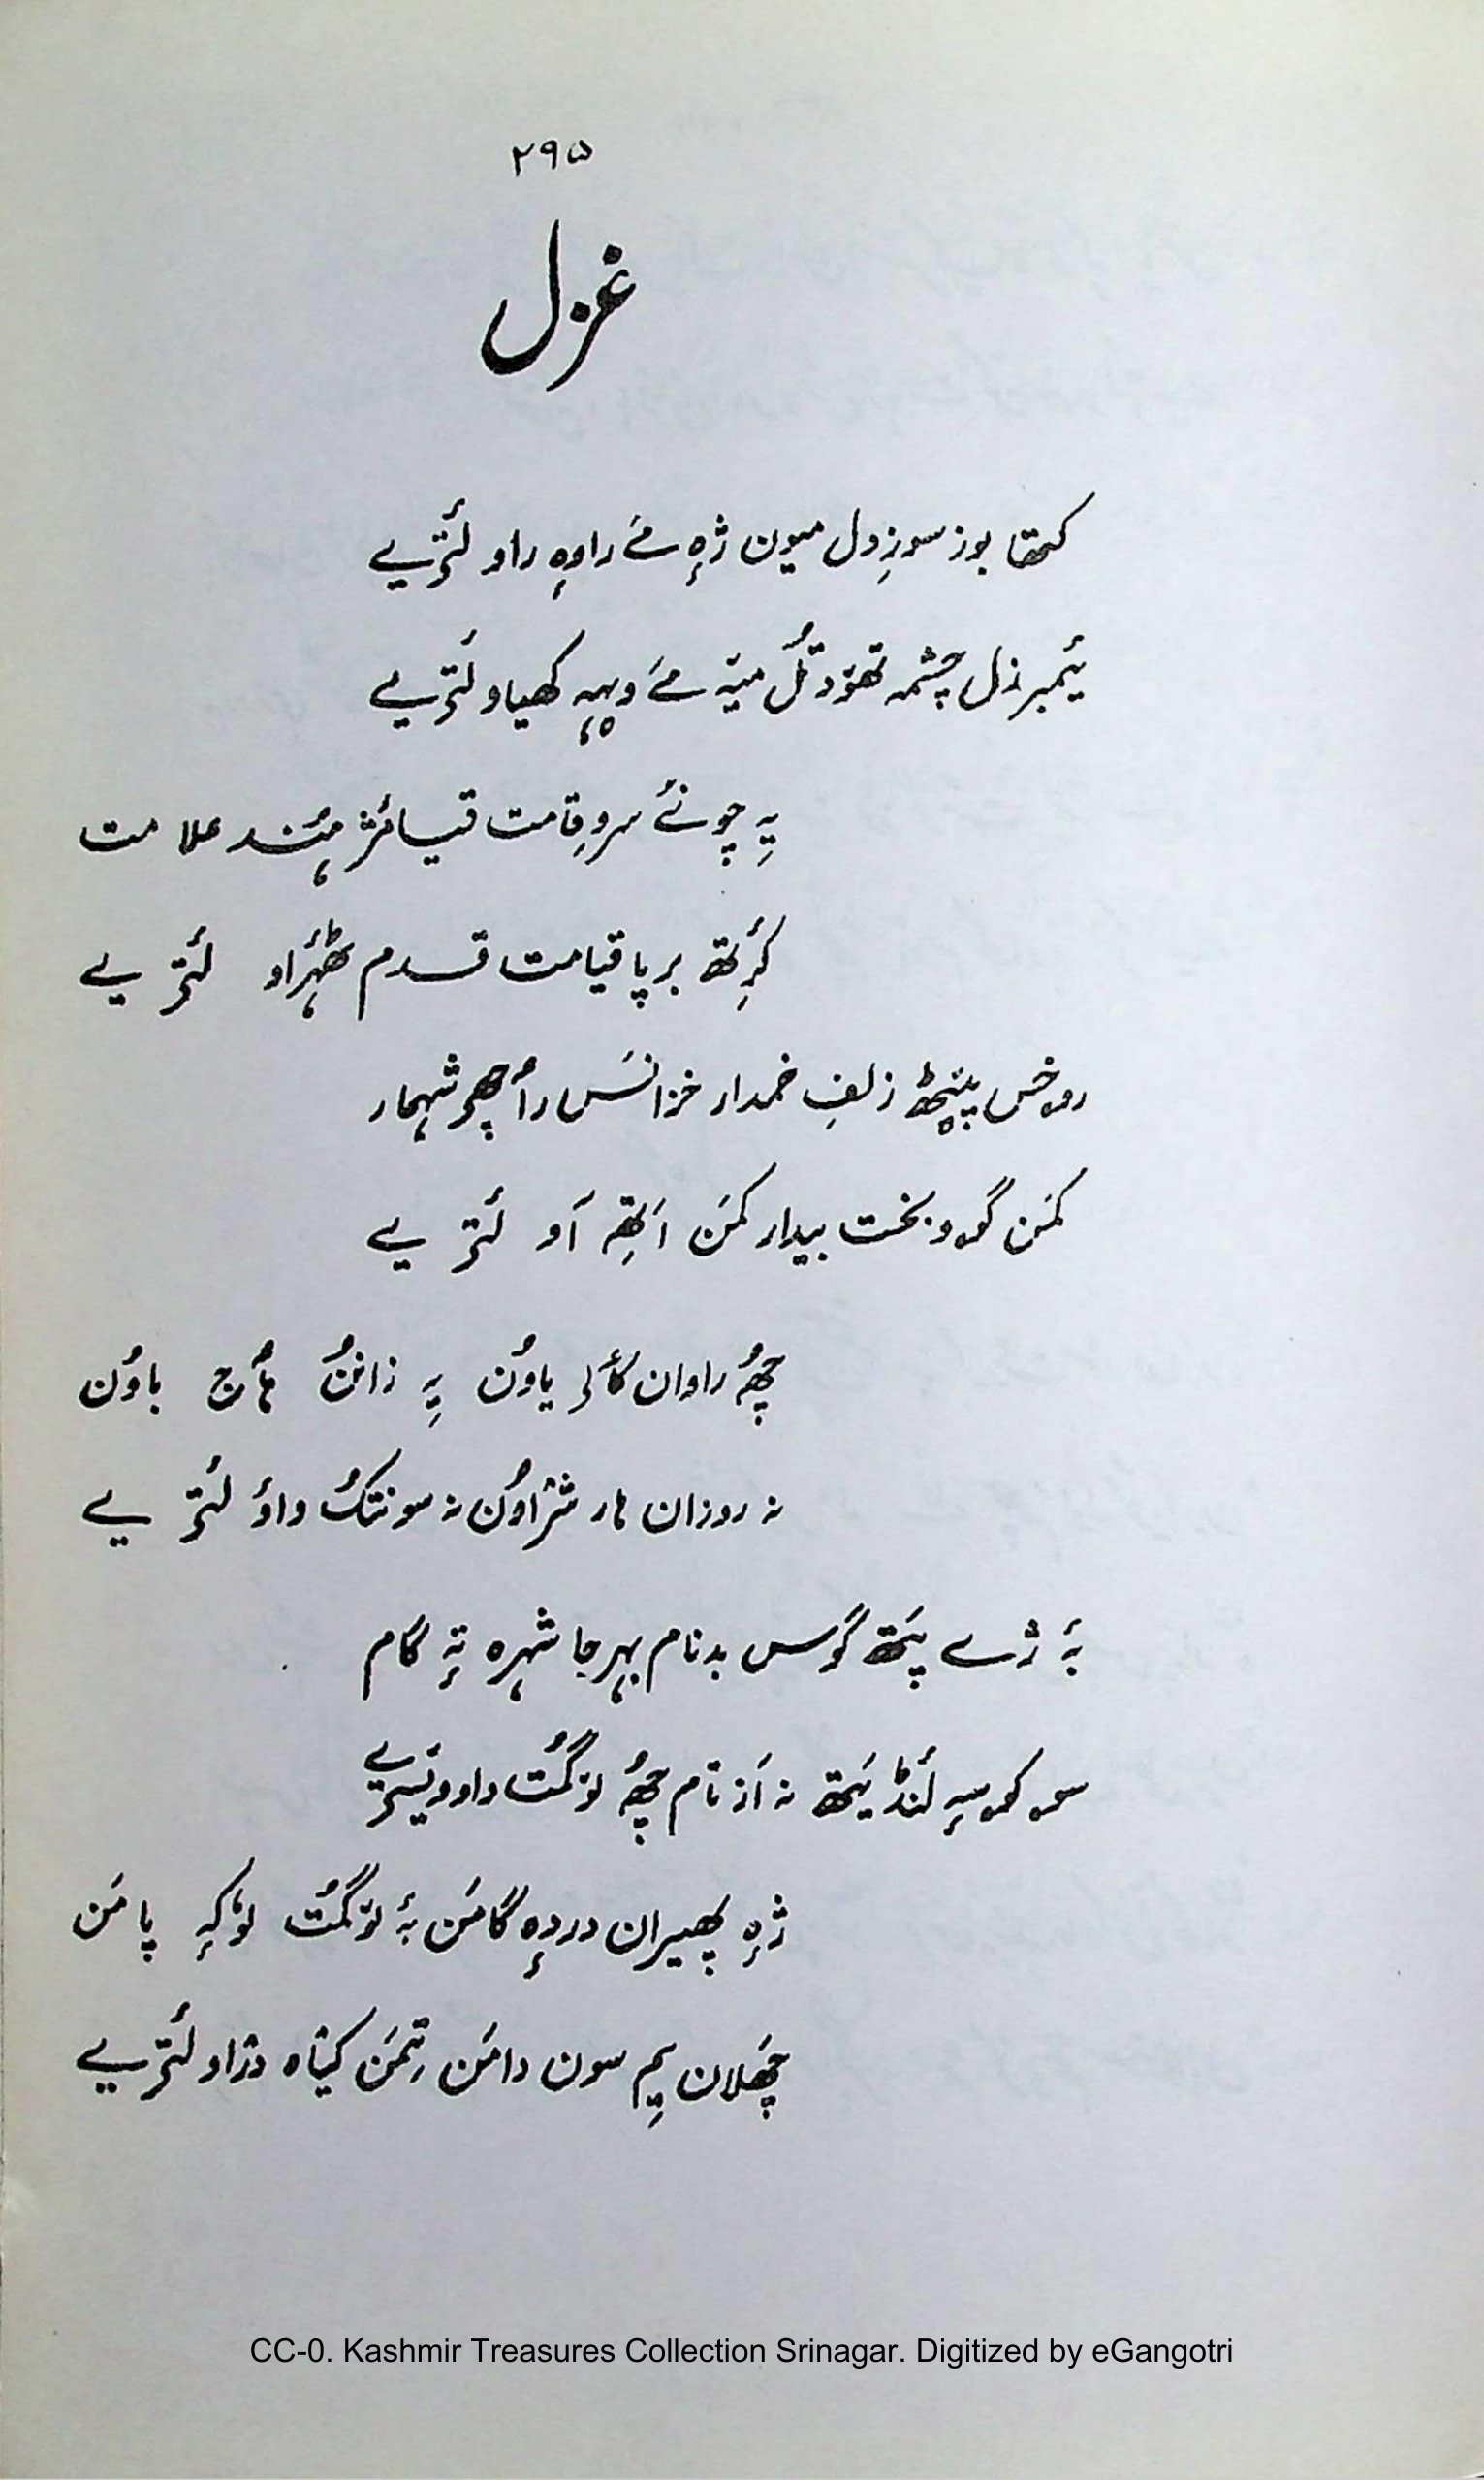 ۲۹۵
غزل
کتھا بوز سوزِ دل میون ژہٕ مےٚ راوہٕ راو لٔتیے
یٔمبرزل چشمہ تھوٚد تُل میٚتہ مےٚ ویہہ کھیاو لٔتیے
یہِ چونےٚ سروِ قامت قیامٔژ ۂند علامت
کٔرِتھ برپا قیامت قدم ٹھۂراو لٔتیے
روخس پیٚٹھ زلفِ خمدار خزانَس رٲچھ شہمار
کمَن گوو بخت بیدار کمَن اَتھِہ آو لٔتیے
چھُ راوان کٲلۍ یاوُن یہِ زانُن ہٲج باوُن
نہ روزان ہار شراوُن نہ سونتُک واو لٔتیے
بہٕ ژے پَتھ گوس بدنام بہر جا شہرہ تہٕ گام
سۄ کۄسہٕ لٔنڈ یَتھ نہ اَز تام چھُ لوٚگمُت واو ویٚسیے
ژہٕ پھیران دردہٕ گامَن بہٕ لوٚگمُت لوٗکہٕ پامَن
چھَلان یِم سون دامَن تِمَن کیٛاہ دزاو لٔتیے
CC-0. Kashmir Treasures Collection Srinagar. Digitized by eGangotri